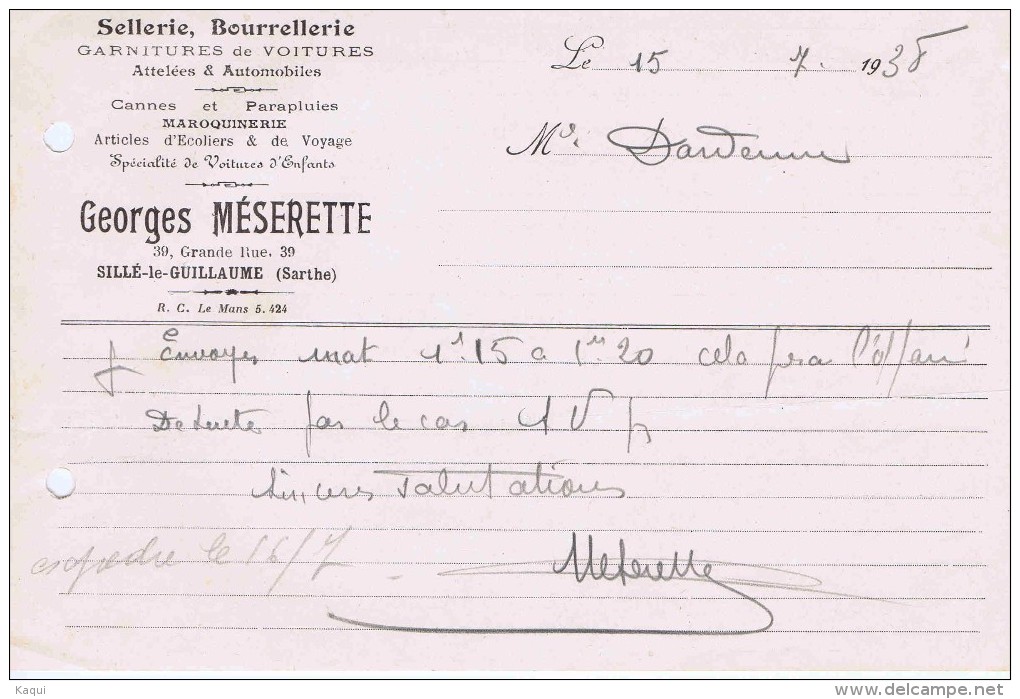 Sellerie, Bourrellerie
GARNITURES de VOITURES
Attelées & Automobiles
Cannes et Parapluies
MAROQUINERIE
Articles d'Ecoliers & de Voyage
Spécialité de Voitures d'Enfants
Georges MÉSERETTE
39, Grande Rue, 39
SILLÉ-le-GUILLAUME (Sarthe)
R. C. Le Mans 5.424
Le 15 7. 1938
Mr Dardenne
Envoyez mat 1m.15 a 1m 20 cela fera l'affaire
par le cas 1 V
Sincères Salutations
expedie le 16/7
Meserette
Kaqui
www.delcampe.net